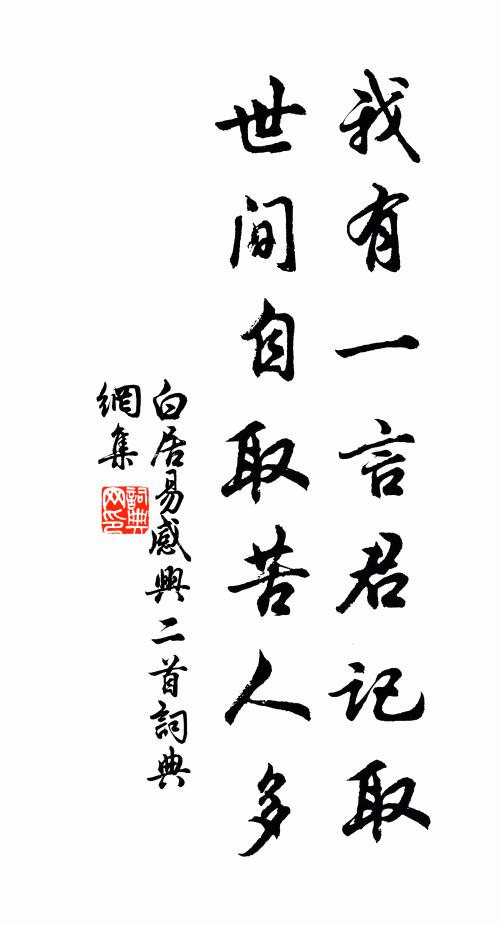 我有一言君记取
世间自取苦人多
白居易感興二首詞典
網集
詞典
网印